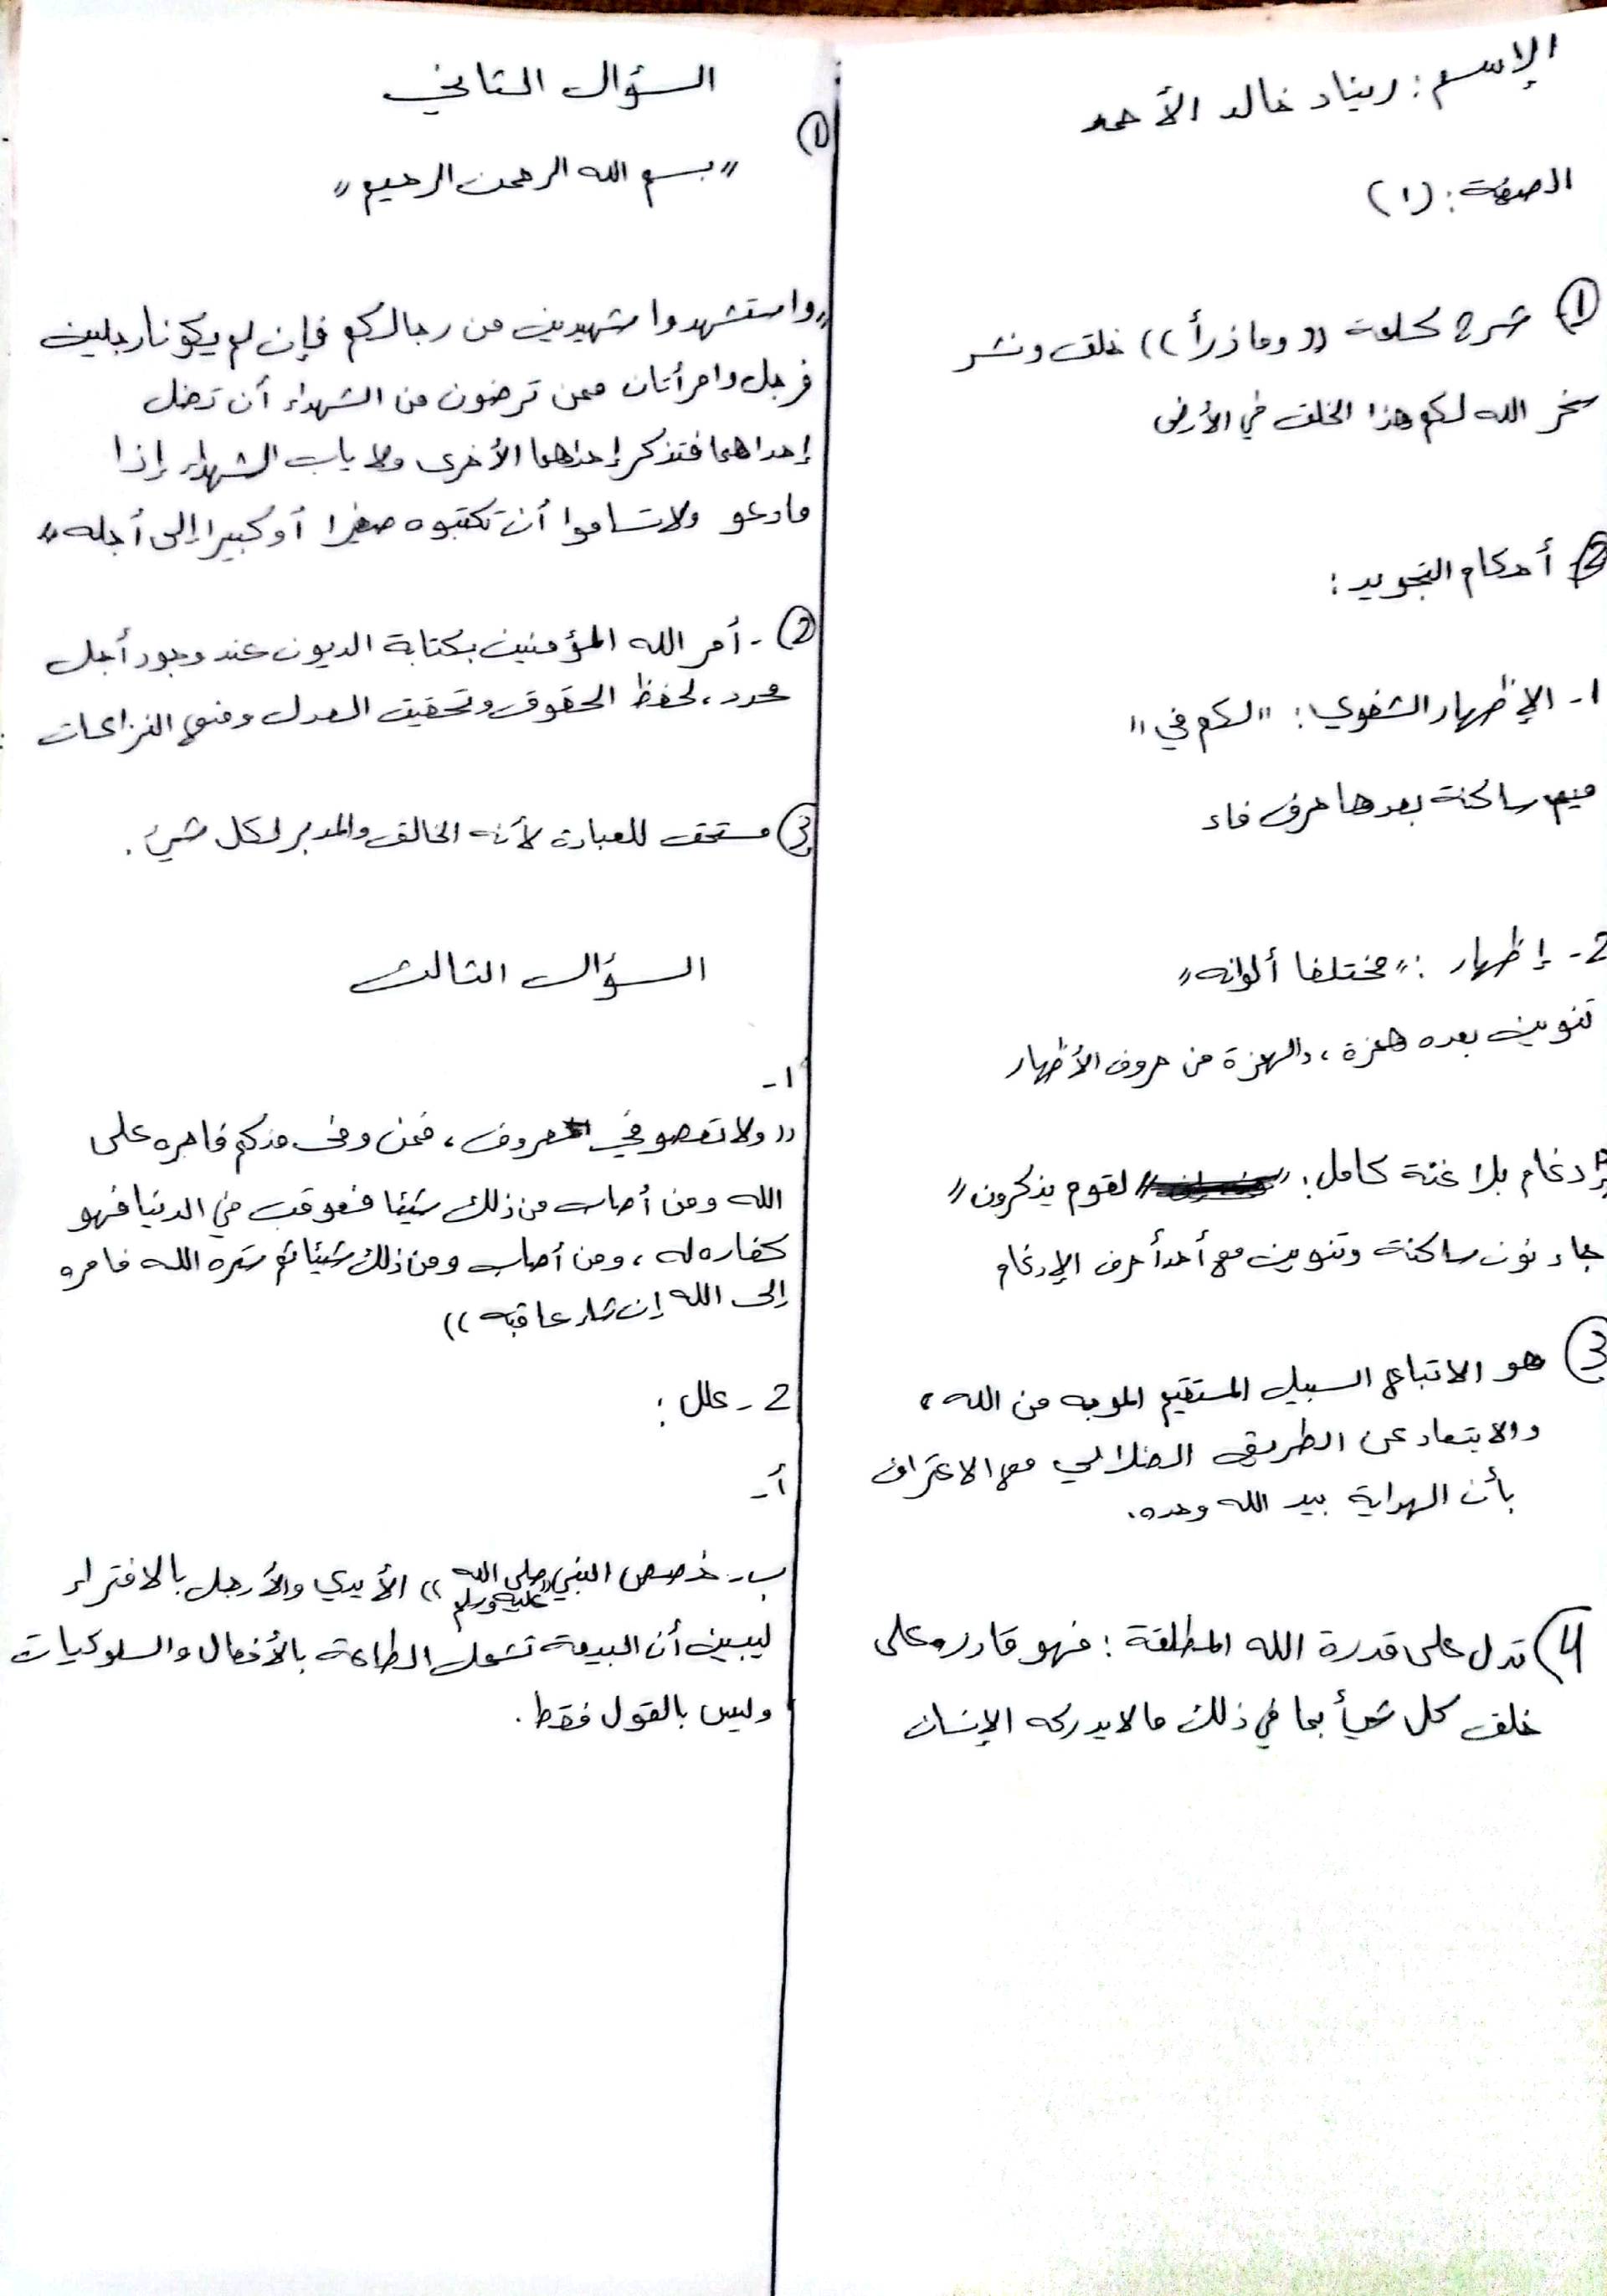 الإسم : ريناد خالد الأحمد
الصفحة : (١)
① شرح كلمة ((وما ذرأ)) خلق ونشر
سخر الله لكم هذا الخلق في الأرض
② أحكام التجويد :
١- الإظهار الشفوي : "لكم في"
ميم ساكنة بعدها حرف فاء
2- إظهار : "مختلفا ألوانه"
تنوين بعده همزة ، والهمزة من حروف الأظهار
إدغام بلا غنة كامل : "لقوم يذكرون"
جاء نون ساكنة وتنوين مع أحدأ حرف الإدغام
③ هو الاتباع السبيل المستقيم الموجه من الله ،
والابتعاد عن الطريق الضلالي مع الاعتراف
بأن الهداية بيد الله وحده.
4) تدل على قدرة الله المطلقة : فهو قادر على
خلق كل شيأ بما في ذلك مالا يدركه الإنسان
السؤال الثاني
①
"بسم الله الرحمن الرحيم"
"واستشهدوا شهيدين من رجالكم فإن لم يكونا رجلين
فرجل وامرأتان ممن ترضون من الشهداء أن تضل
إحداهما فتذكر إحداهما الأخرى ولا ياب الشهداء إذا
مادعو ولا تساموا أن تكتبوه صغيرا أو كبيرا إلى أجله"
②- أمر الله المؤمنين بكتابة الديون عند وجود أجل
محدد ، لحفظ الحقوق وتحقيق العدل ومنع النزاعات
③ مستحق للعبادة لأنه الخالق والمدبر لكل شيئ .
السؤال الثالث
١-
((ولا تعصو في معروف ، فمن وفى منكم فاجره على
الله ومن أصاب من ذلك شيئا فعوقب في الدنيا فهو
كفاره له ، ومن أصاب ومن ذلك شيئا ثم ستره الله فامره
إلى الله إن شاء عاقبه))
2- علل :
أ-
ب- خصص النبي "صلى الله عليه وسلم" الأيدي والأرجل بالافتراء
ليبين أن البيعة تشمل الطاعة بالأفعال والسلوكيات
وليس بالقول فقط .